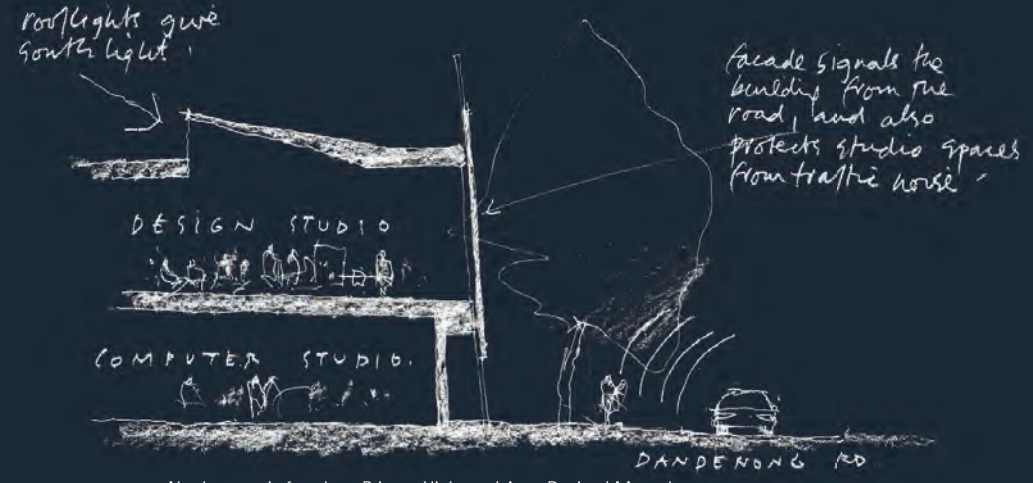 rooflights give
south light.
facade signals the
building from the
road, and also
protects studio spaces
from traffic noise.
DESIGN STUDIO
COMPUTER STUDIO.
DANDENONG RD